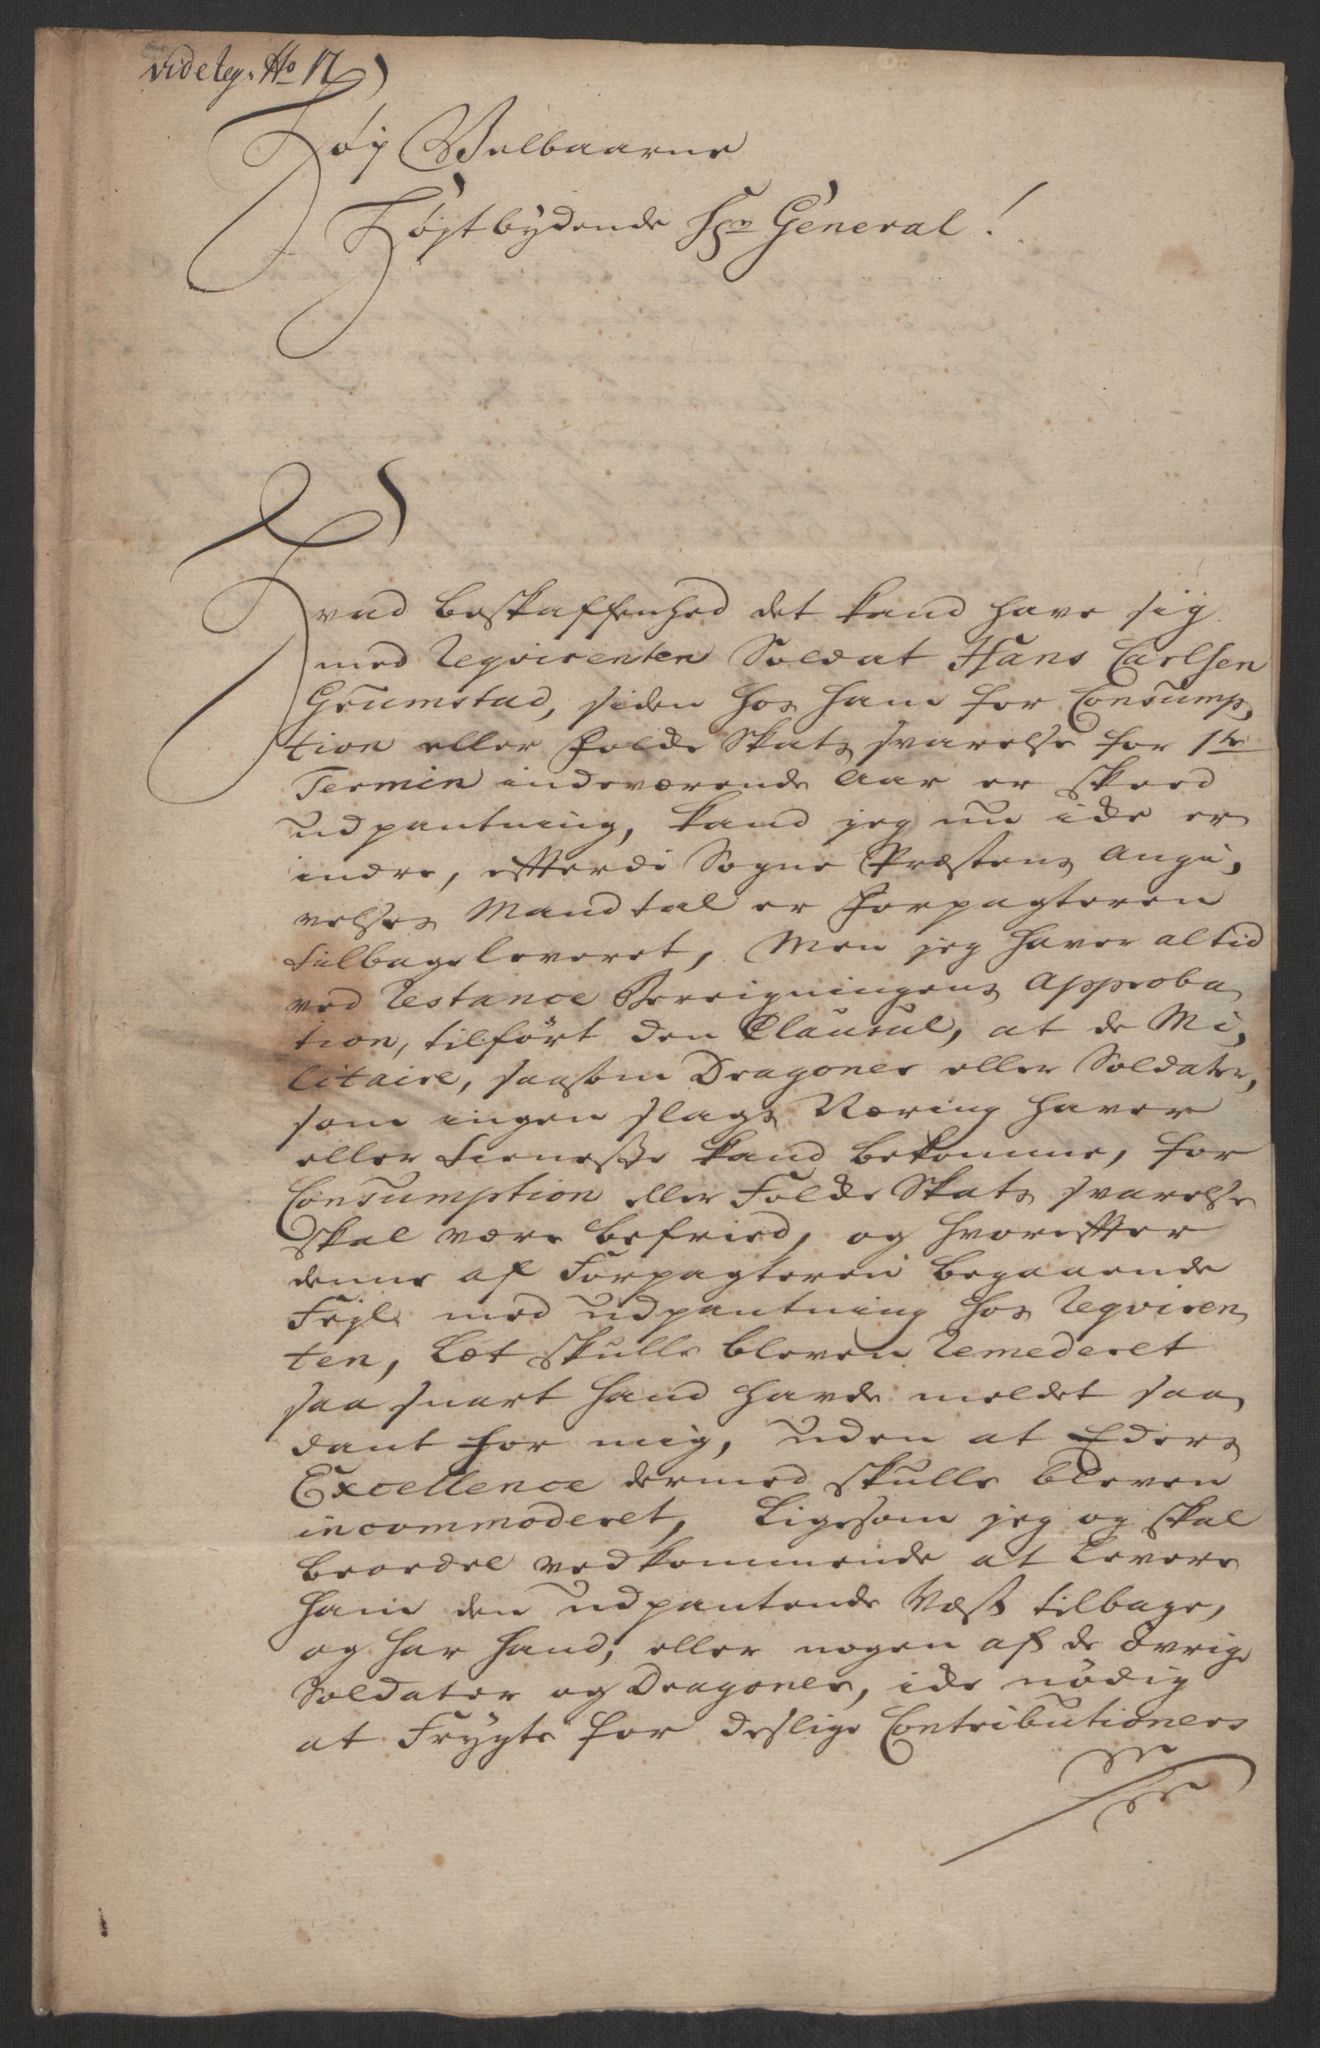 vide Reg. No 17
Høy Velbaarne
Høystbydende Hr General!
Hvad beskaffenhed det kand have sig
med Reqvirenten Soldat Hans Carlsen
Grumstad, siden hos ham for Consump,
tion eller Folde Skats svarelse for 1te
Termin indeværende Aar er skeed
udpantning, kand jeg nu icke er
indre, efterdi Sogne Præstens Angi,
velses Mandtal er Forpagteren
tilbageleveret, Men jeg haver altid
ved Restance Beregningens Approba
tion, tilført den Clausul, at de Mi,
litaire, saasom Dragoner eller Soldater,
som ingen slags Næring haver
eller tieneste kand bekomme, for
Consumption eller Folde Skats svarelse
skal være befried, og hvorefter
denne af Forpagteren begaaende
Fejl med udpantning hos Reqviren
ten, let skulle bleven Remederet
saa snart hand havde meldet saa
dant for mig, uden at Eders
Excellence dermed skulle bleven
incommoderet, Ligesom jeg og skal
beordre vedkommende at levere
ham den udpantende Væst tilbage,
og har hand, eller nogen af de øvrige
Soldater og Dragoner, icke nødig
at Frygte for deslige Contributioners